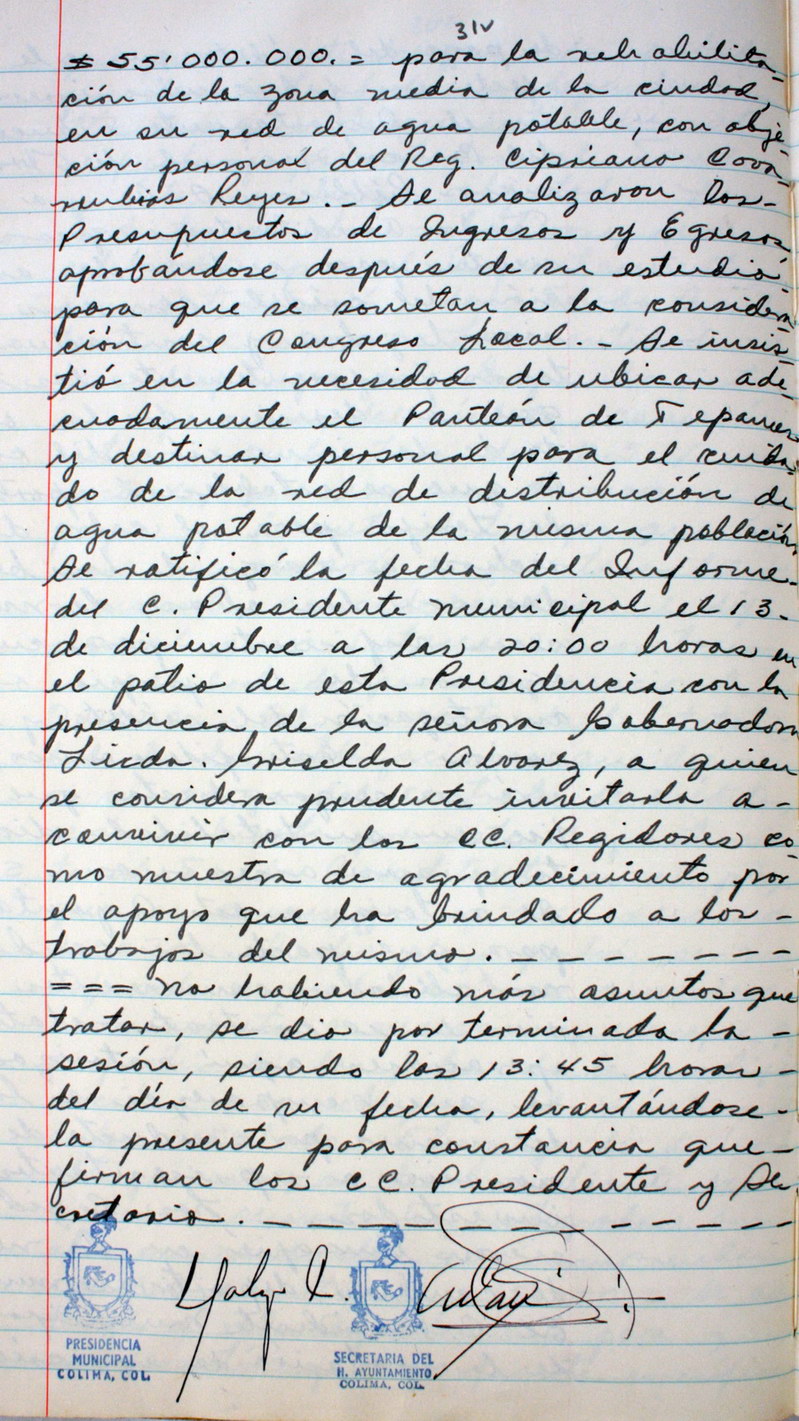 31v
$55'000.000.= para la rehabilita-
ción de la zona media de la ciudad,
en su red de agua potable, con obje-
ción personal del Reg. Cipriano Cova-
rrubias Reyes._ Se analizaron los-
Presupuestos de Ingresos y Egresos
aprobándose después de su estudio
para que se sometan a la considera
ción del Congreso Local._ Se insis-
tió en la necesidad de ubicar ade-
cuadamente el Panteón de Tepames
y destinar personal para el cuida-
do de la red de distribución de
agua potable de la misma población
Se ratificó la fecha del Informe-
del C. Presidente Municipal el 13-
de diciembre a las 20:00 horas en
el patio de esta Presidencia con la
presencia de la señora Gobernadora
Licda. Griselda Alvarez, a quien
se considera prudente invitarla a-
convivir con los CC. Regidores co
mo muestra de agradecimiento por
el apoyo que ha brindado a los-
trabajos del mismo._ _ _ _ _ _ _ _
=== No habiendo más asuntos que
tratar, se dio por terminada la-
sesión, siendo las 13:45 horas-
del día de su fecha, levantándose-
la presente para constancia que-
firman los CC. Presidente y Se-
cretario._ _ _ _ _ _ _ _ _ _ _ _ _
PRESIDENCIA
MUNICIPAL
COLIMA, COL.
SECRETARIA DEL
H. AYUNTAMIENTO
COLIMA, COL.